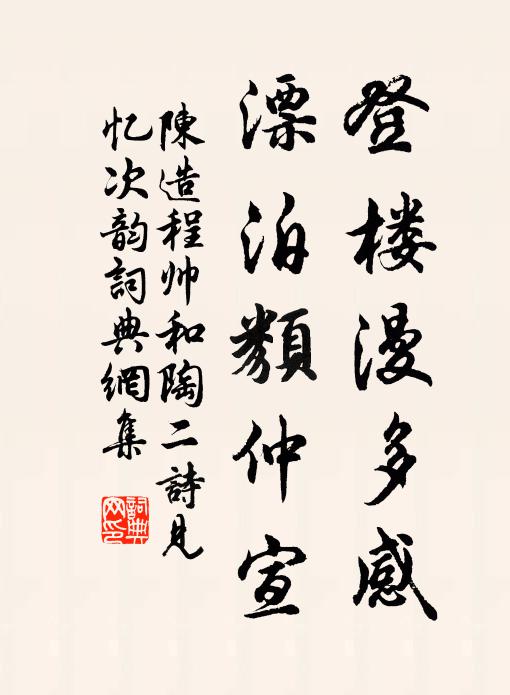 登楼漫多感
漂泊類仲宣
陳造程帅和陶二詩見
忆次韵詞典網集
詞典網印